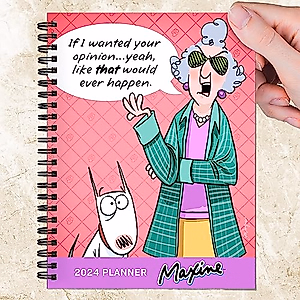 If I wanted your
opinion...yeah,
like that would
ever happen.
2024 PLANNER Maxine